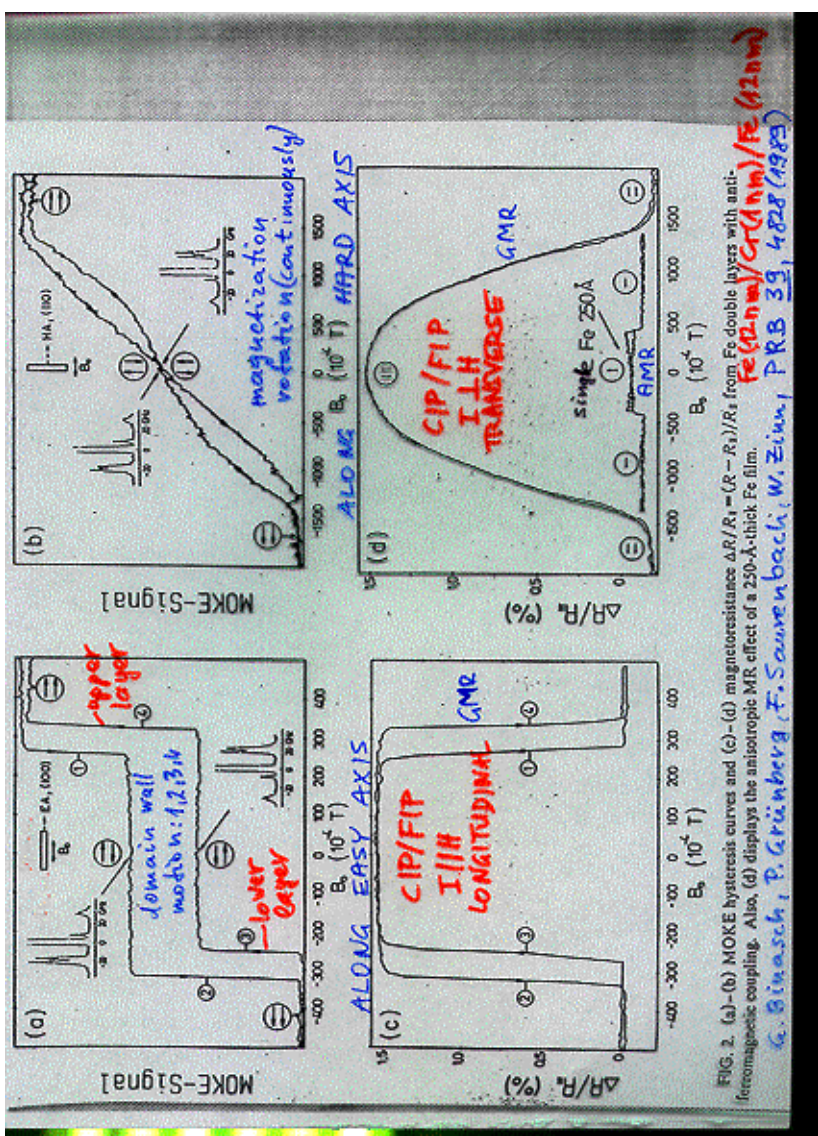 (a)
MOKE-Signal
EA, (100)
B₀
-20 0 20 GHz
①
②
③
④
upper
layer
domain wall
motion: 1,2,3,4
lower
layer
-20 0 20 GHz
-400 -300 -200 -100 0 100 200 300 400
B₀ (10⁻⁴ T)
ALONG EASY AXIS
(b)
MOKE-Signal
HA, (110)
B₀
-20 0 20 GHz
-20 0 20 GHz
magnetization
rotation (continuously)
-1500 -1000 -500 0 500 1000 1500
B₀ (10⁻⁴ T)
ALONG HARD AXIS
(c)
ΔR/R∥ (%)
1.5
1.0
0.5
0
CIP/FIP
I//H
LONGITUDINAL
GMR
①
②
③
④
-400 -300 -200 -100 0 100 200 300 400
B₀ (10⁻⁴ T)
(d)
ΔR/R∥ (%)
1.5
1.0
0.5
0
CIP/FIP
I⊥H
TRANSVERSE
GMR
single Fe 250Å
AMR
-1500 -1000 -500 0 500 1000 1500
B₀ (10⁻⁴ T)
FIG. 2. (a)–(b) MOKE hysteresis curves and (c)–(d) magnetoresistance ΔR/R∥=(R−R∥)/R∥ from Fe double layers with anti-
ferromagnetic coupling. Also, (d) displays the anisotropic MR effect of a 250-Å-thick Fe film.
Fe(12nm)/Cr(1nm)/Fe(12nm)
G. Binasch, P. Grünberg, F. Saurenbach, W. Zinn, PRB 39, 4828 (1989)